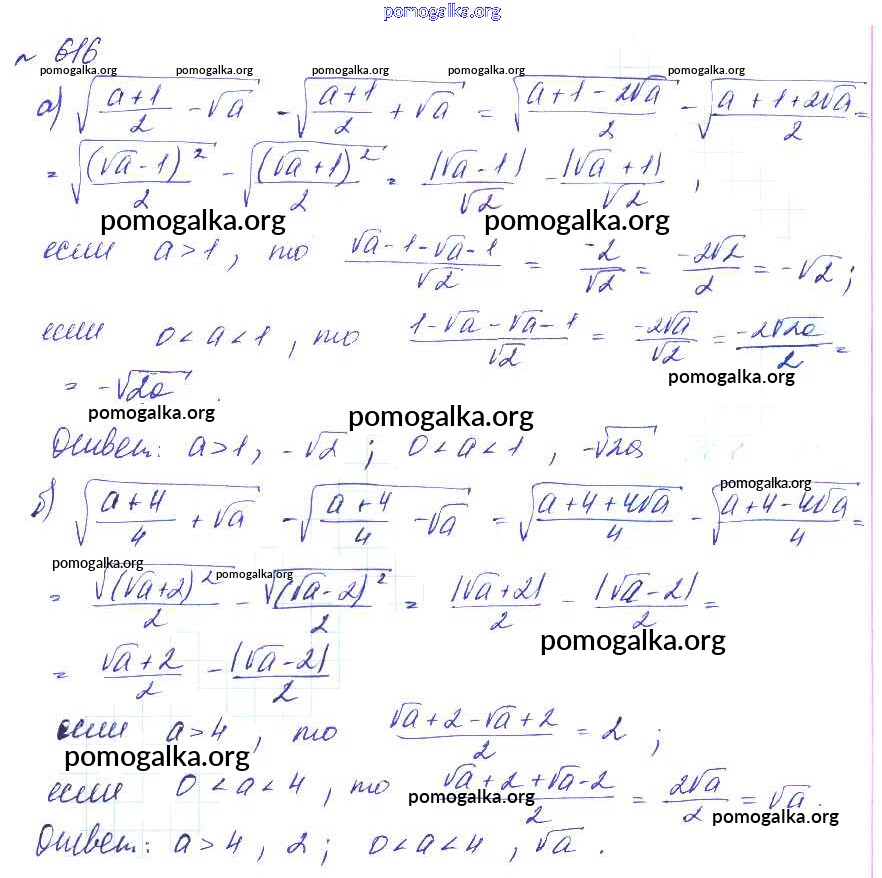 pomogalka.org
~ 616
pomogalka.org pomogalka.org pomogalka.org pomogalka.org pomogalka.org
а) √((a+1)/2 - √a) - √((a+1)/2 + √a) = √((a+1-2√a)/2) - √((a+1+2√a)/2) =
= √((√a-1)²/2) - √((√a+1)²/2) = |√a-1|/√2 - |√a+1|/√2 ,
pomogalka.org pomogalka.org
если a>1, то (√a-1-√a-1)/√2 = -2/√2 = -2√2/2 = -√2;
если 0<a<1, то (1-√a-√a-1)/√2 = -2√a/√2 = -2√2a/2 =
pomogalka.org
= -√2a .
pomogalka.org pomogalka.org
Ответ: a>1, -√2; 0<a<1, -√2a
pomogalka.org
б) √((a+4)/4 + √a) - √((a+4)/4 - √a) = √((a+4+4√a)/4) - √((a+4-4√a)/4) =
pomogalka.org pomogalka.org
= √(√a+2)²/2 - √(√a-2)²/2 = |√a+2|/2 - |√a-2|/2 =
pomogalka.org
= (√a+2)/2 - |√a-2|/2
если a>4, то (√a+2-√a+2)/2 = 2;
pomogalka.org
если 0<a<4, то (√a+2+√a-2)/2 = 2√a/2 = √a.
pomogalka.org pomogalka.org
Ответ: a>4, 2; 0<a<4, √a.